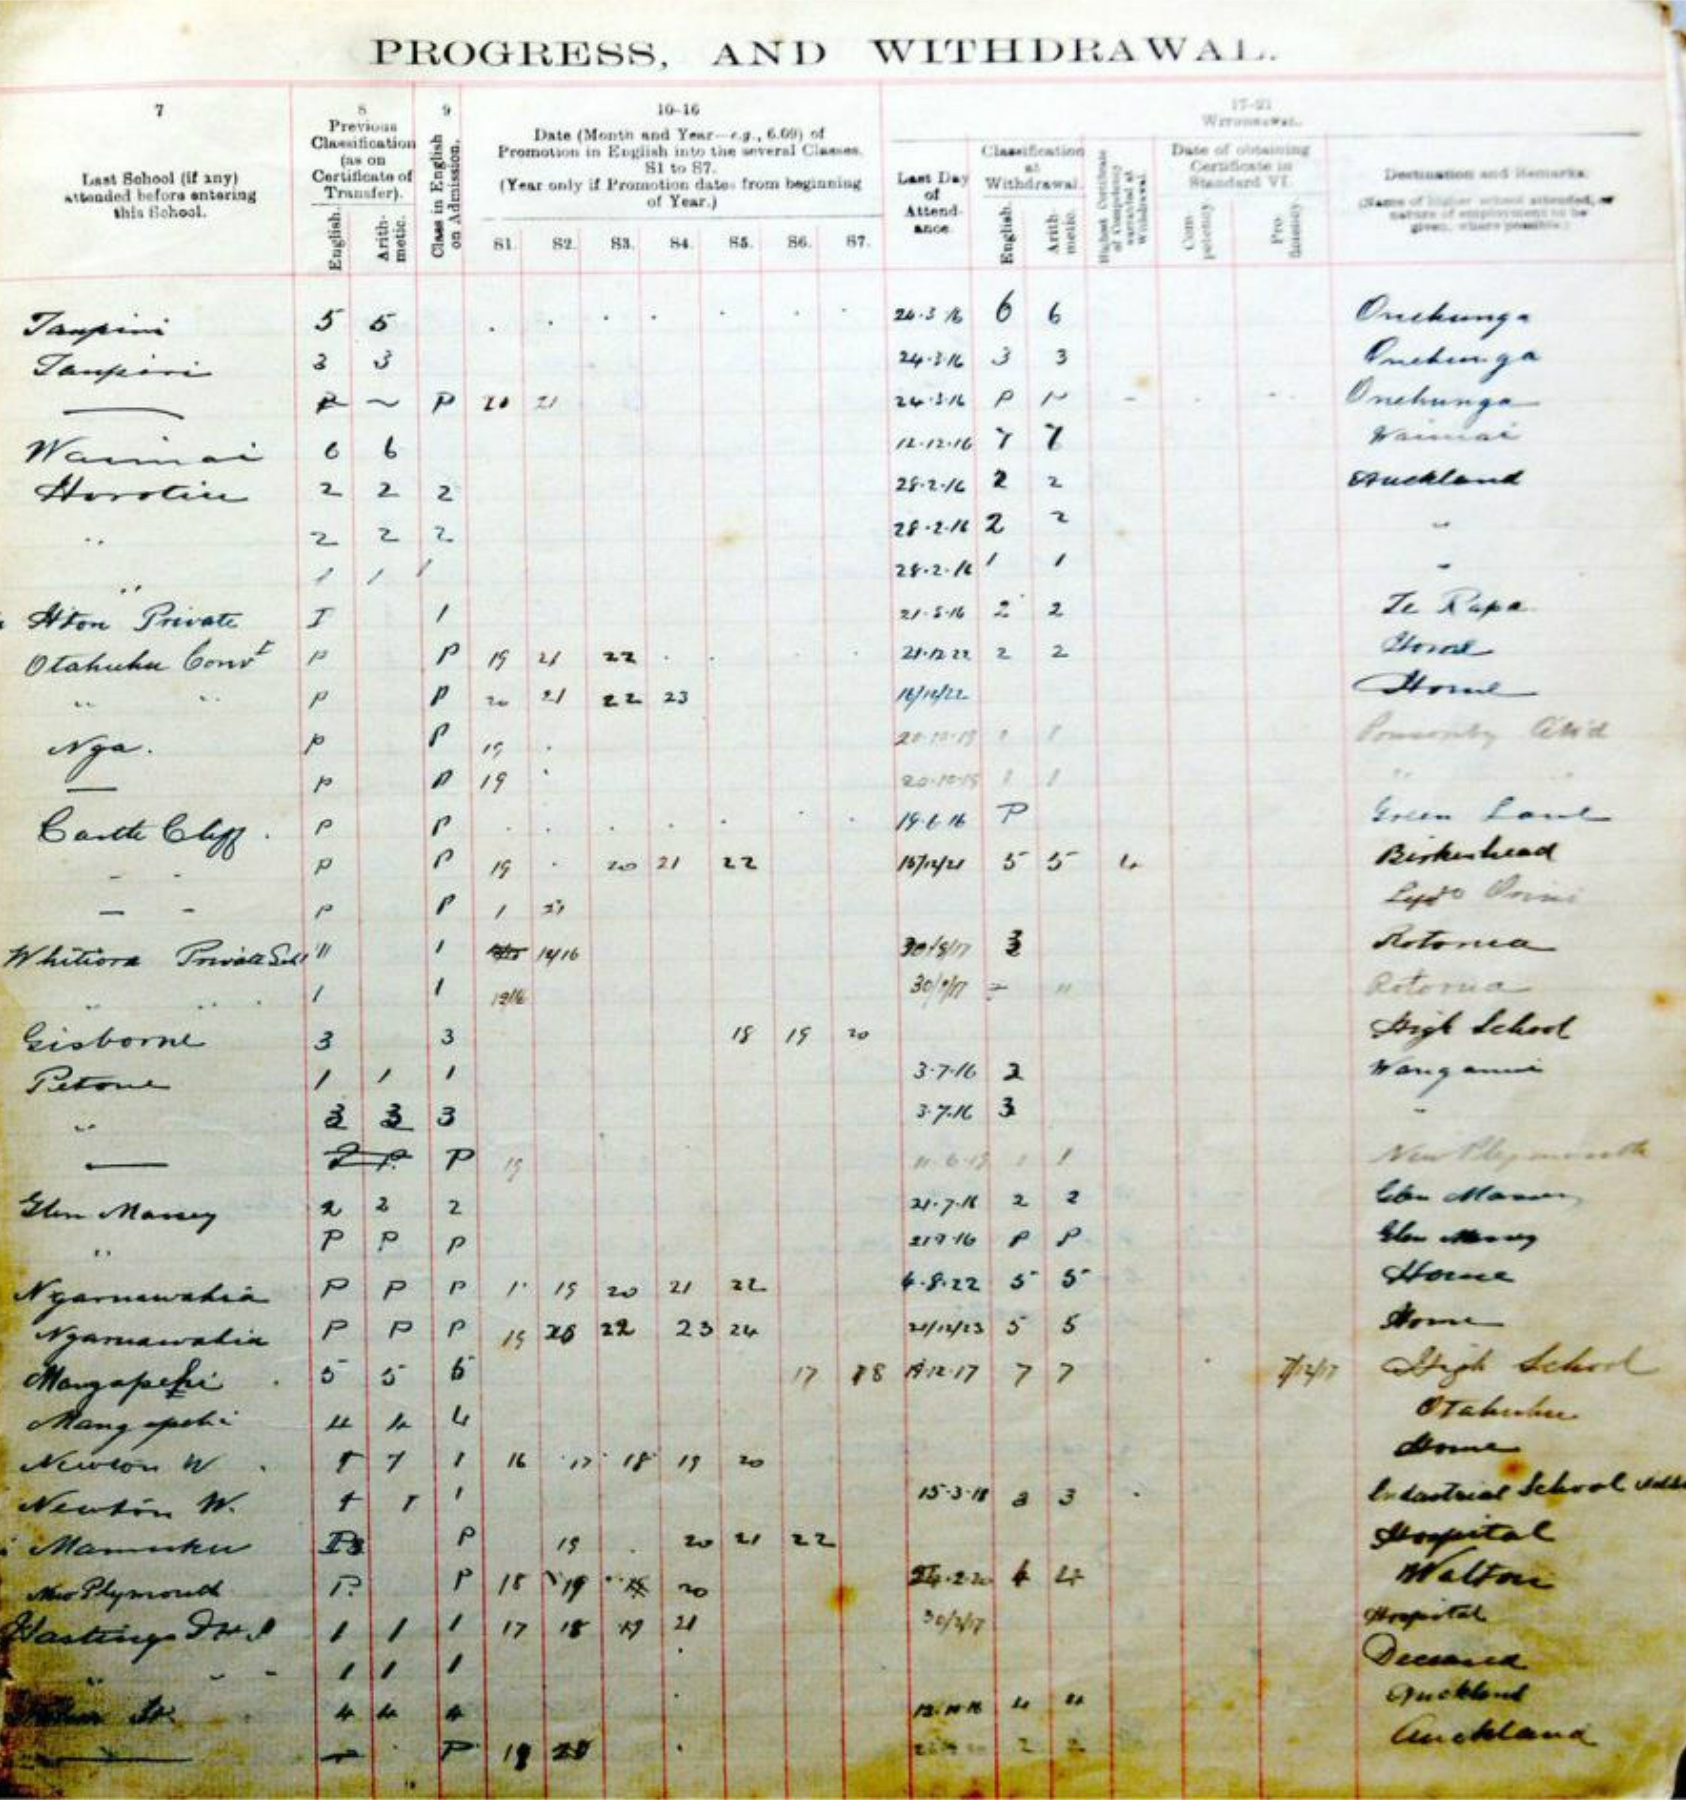 PROGRESS, AND WITHDRAWAL.
7 8 9 10-16 17-21
Last School (if any) attended before entering this School.
Previous Classification (as on Certificate of Transfer).
English. Arith-metic.
Class in English on Admission.
Date (Month and Year—e.g., 6.09) of Promotion in English into the several Classes, S1 to S7.
(Year only if Promotion dates from beginning of Year.)
S1. S2. S3. S4. S5. S6. S7.
Withdrawal.
Last Day of Attend-ance.
Classification at Withdrawal.
English. Arith-metic.
Highest Certificate of Competency
Withdrawal.
Date of obtaining Certificate in Standard VI.
Com-petency. Pro-ficiency.
Destination and Remarks.
(Name of higher school attended, or nature of employment to be given, where possible.)
Taupiri 5 5 24·3·16 6 6 Onehunga
Taupiri 3 3 24·3·16 3 3 Onehunga
P P 20 21 24·3·16 P Onehunga
Waimai 6 6 12·12·16 7 7 Waimai
Horotiu 2 2 2 28·2·16 2 2 Auckland
" 2 2 2 28·2·16 2 2 "
" 1 1 1 28·2·16 1 1 "
Hton Private I 1 21·5·16 2 2 Te Rapa
Otahuhu Convt P P 19 21 22 21·12·22 2 2 Home
" " P P 20 21 22 23 16/12/22 Home
Nga. P P 19 20·10·19 1 1 Ponsonby
— P P 19 20·10·19 1 1 " "
Castle Cliff. P P 19·6·16 P Green Lane
" P P 19 20 21 22 15/12/21 5 5 4 Birkenhead
" P P 1 21
Whitiora Private Schl 11 1 12/16 30/8/17 3 Rotorua
" " 1 1 12/16 30/9/17 " Rotorua
Gisborne 3 3 18 19 20 High School
Petone 1 1 1 3·7·16 2 Wanganui
" 3 3 3 3·7·16 3 "
— P 19 11·6·19 1 1 New Plymouth
Glen Massey 2 2 2 21·7·16 2 2 Glen Massey
" P P P 21·7·16 P P Glen Massey
Ngaruawahia P P P 1 19 20 21 22 4·8·22 5 5 Home
Ngaruawahia P P P 19 20 22 23 24 21/12/23 5 5 Home
Mangapehi 5 5 5 17 18 19·12·17 7 7 7/12/17 High School
Mangapehi 4 4 4 Otahuhu
Newton W. 1 1 1 16 17 18 19 20 Home
Newton W. 1 1 1 15·3·18 3 3 Industrial School
Mamaku P 19 20 21 22 Hospital
New Plymouth P P 18 19 20 24·2·20 4 4 Walton
Hastings 1 1 1 17 18 19 21 30/3/17 Hospital
" " 1 1 1 Deceased
St. 4 4 4 12·10·16 4 4 Auckland
— P 19 20 2 2 Auckland